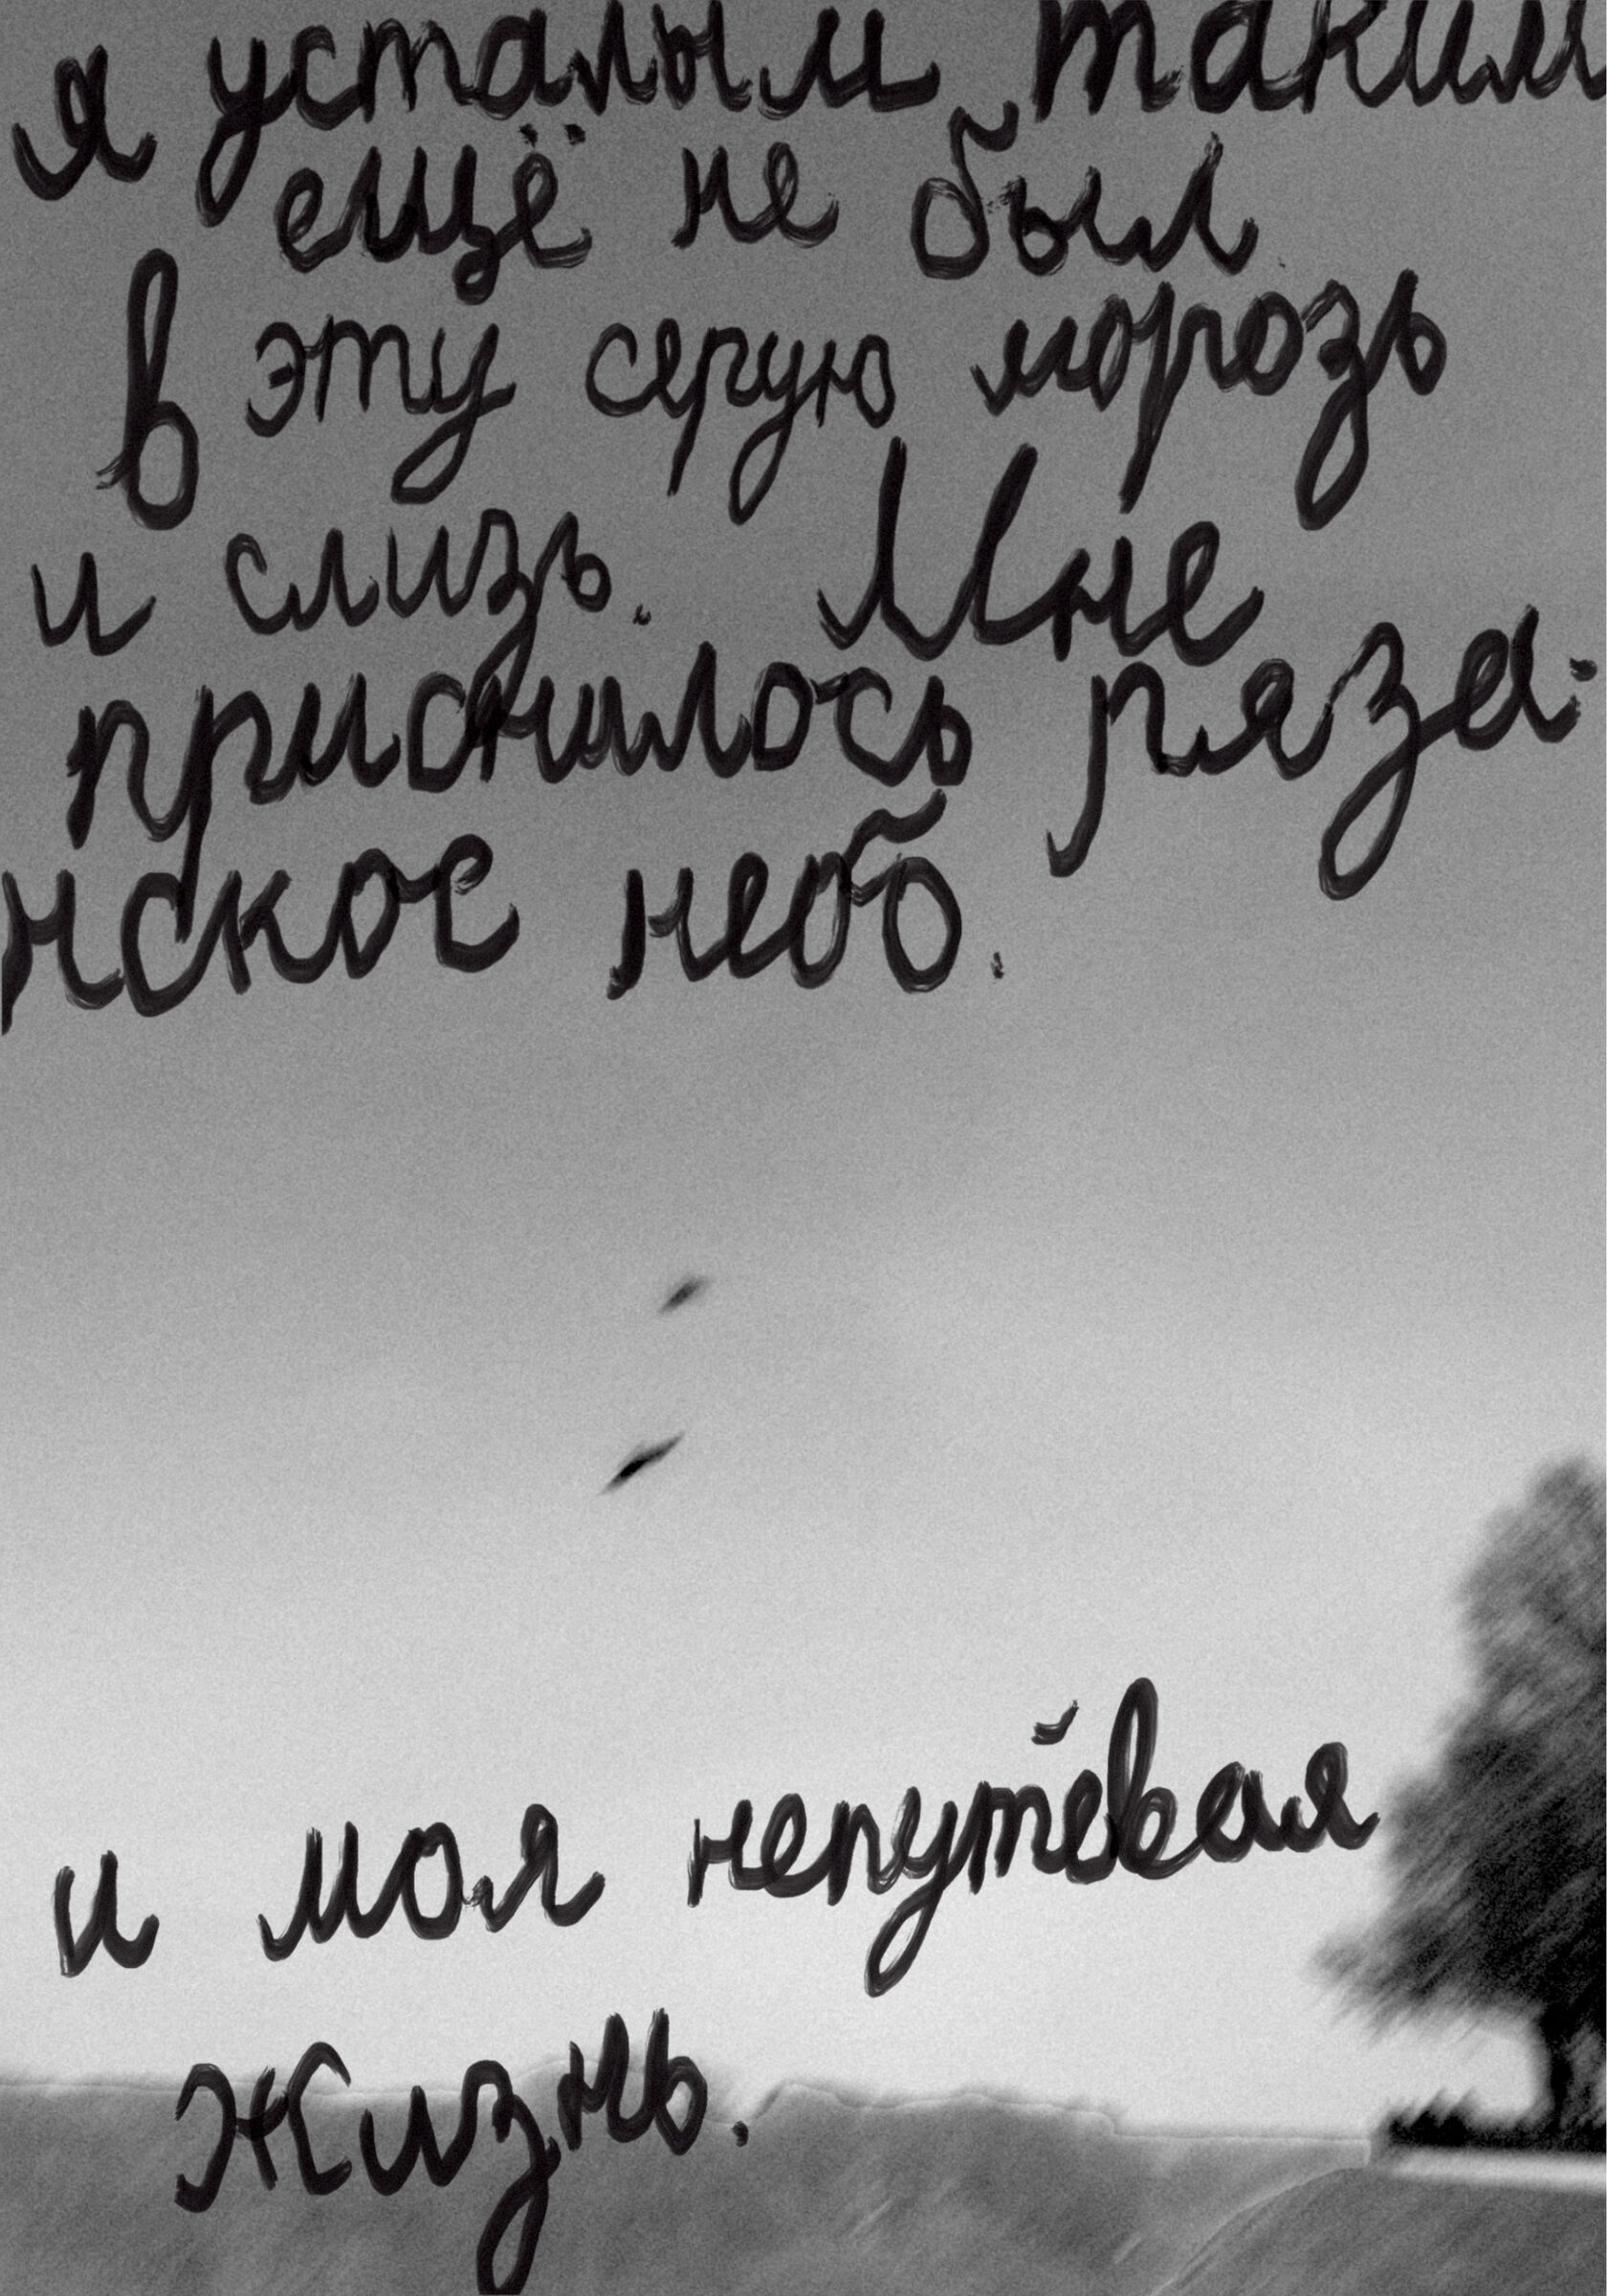 я усталым таким
ещё не был
в эту серую морозь
и слизь. Мне
приснилось ряза-
нское небо.
и моя непутёвая
жизнь.